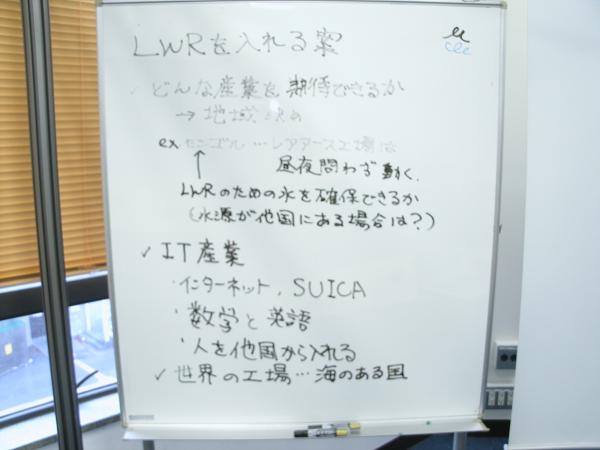 LWRを入れる案
✓ どんな産業を期待できるか
→ 地域
ex モンゴル…レアアース工場は
昼夜問わず動く.
↑
LWRのための水を確保できるか
(水源が他国にある場合は?)
✓ IT産業
・インターネット, SUICA
・数学と英語
・人を他国から入れる
✓ 世界の工場…海のある国